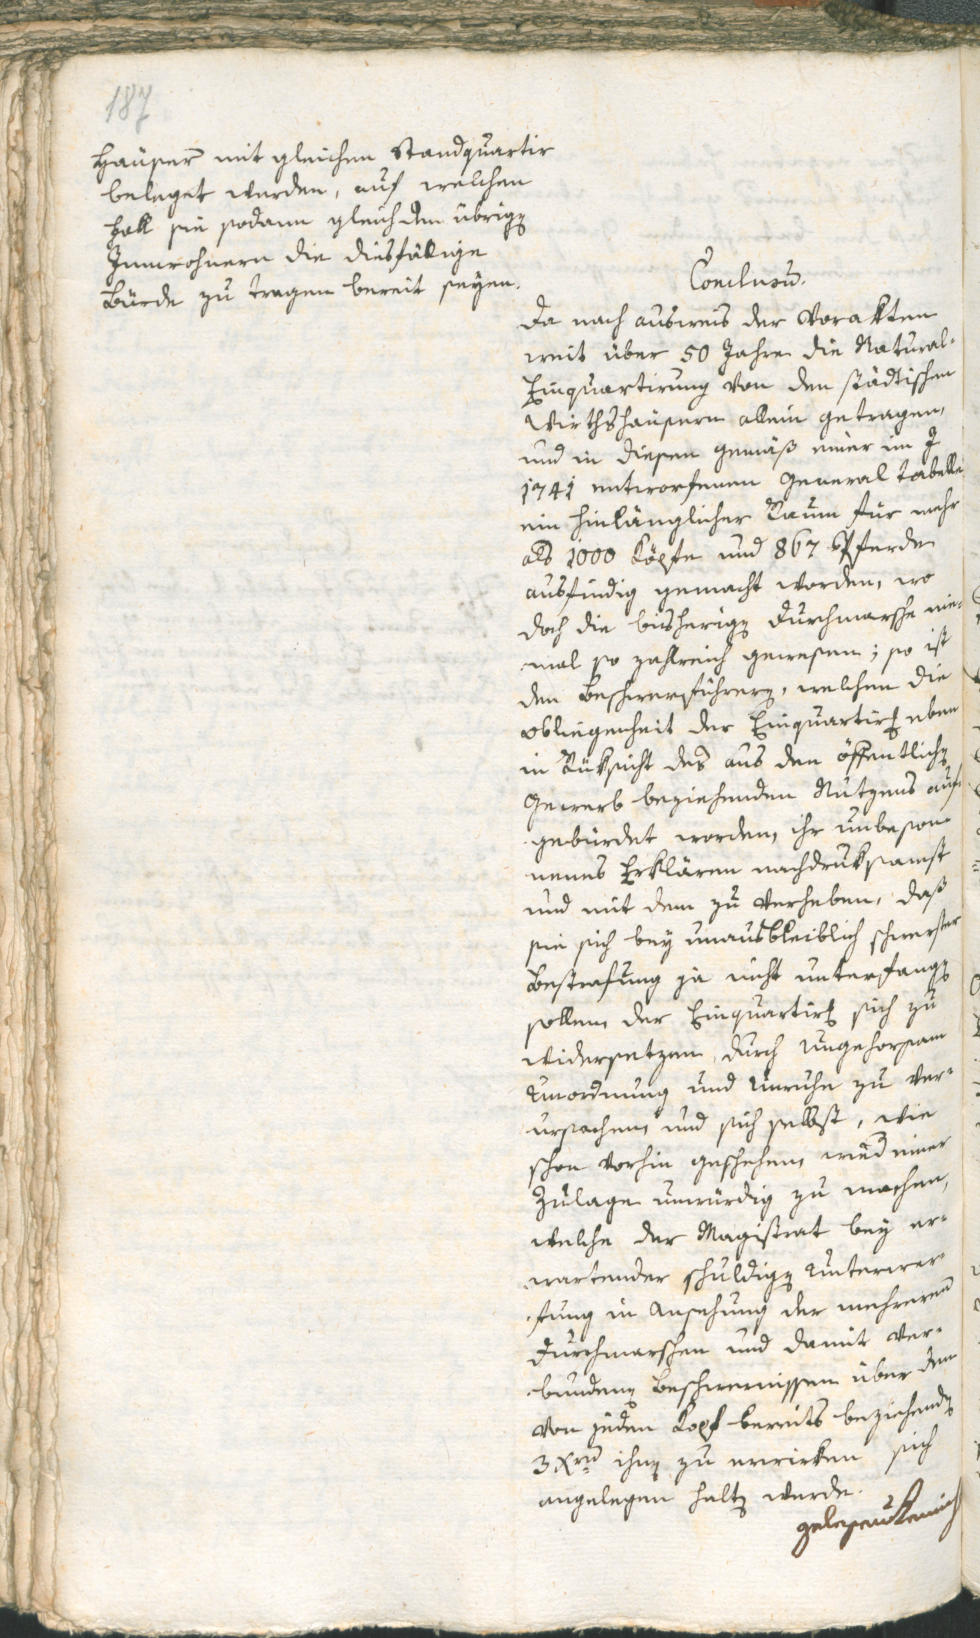 187
Häuser mit gleichen Standquartir
beleget werden, auf welchen
Fall sie sodann gleich den übrigen
Innwohnern die diesfällige
Bürde zu tragen bereit seyen.
Conclusum.
Da nach ausweis der Vorakten
weit über 50 Jahre die Natural-
Einquartirung von den städtischen
Wirthshäusern allein getragen,
und in diesen gemäß einer im J
1741 entworfenen General tabelle
ein hinlänglicher Raum für mehr
als 1000 Köpfe und 867 Pferde
ausfindig gemacht worden, wo
doch die bisherigen Durchmarsche nie-
mal so zahlreich gewesen; so ist
den Beschwerführern, welchen die
obliegenheit der Einquartirung eben
in Rüksicht des aus den öffentlichen
Gewerb beziehenden Nutzens auf-
gebürdet worden, ihr unbeson-
nenes Erklären nachdruksamst
und mit dem zu verheben, daß
sie sich bey unausbleiblich schwerster
Bestrafung ja nicht unterfangen
sollen, der Einquartirung sich zu
widersetzen, durch Ungehorsam
Unordnung und Unruhe zu ver-
ursachen, und sich selbst, wie
schon vorhin geschehen, einer
Zulage unwürdig zu machen,
welche der Magistrat bey er-
wartender schuldigen Unterwer-
fung in Ansehung der mehreren
Durchmarschen und damit ver-
bundenen Beschwernissen über den
von jeden Kopf bereits beziehenden
3 Xrn ihnen zu erwirken sich
angelegen halten werde.